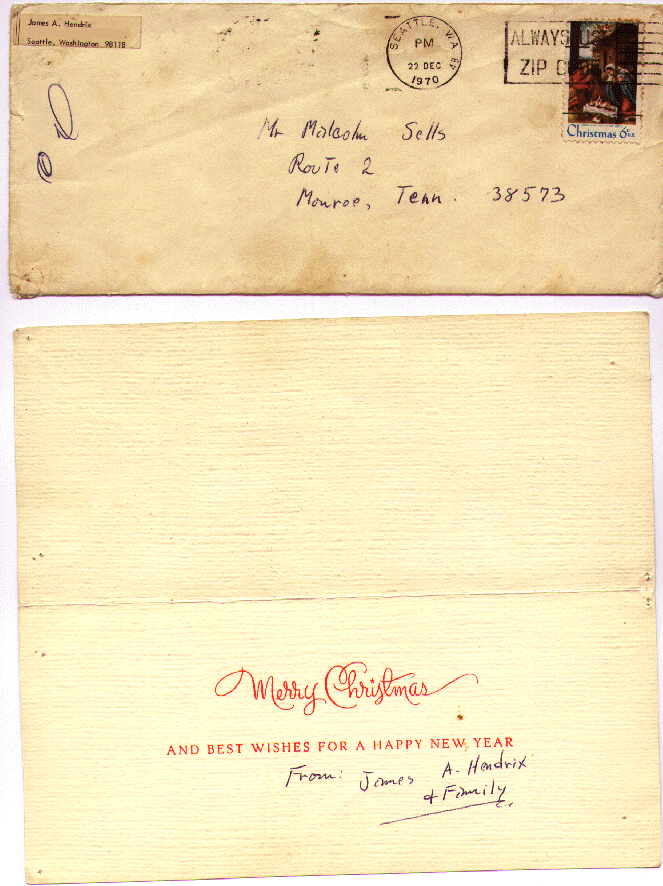 James A. Hendrix
Seattle, Washington 98118
SEATTLE, WA
PM
22 DEC
1970
ALWAYS USE
ZIP CODE
Christmas 6
Mr Malcolm Sells
Route 2
Monroe, Tenn. 38573
Merry Christmas
AND BEST WISHES FOR A HAPPY NEW YEAR
From: James A. Hendrix
& Family